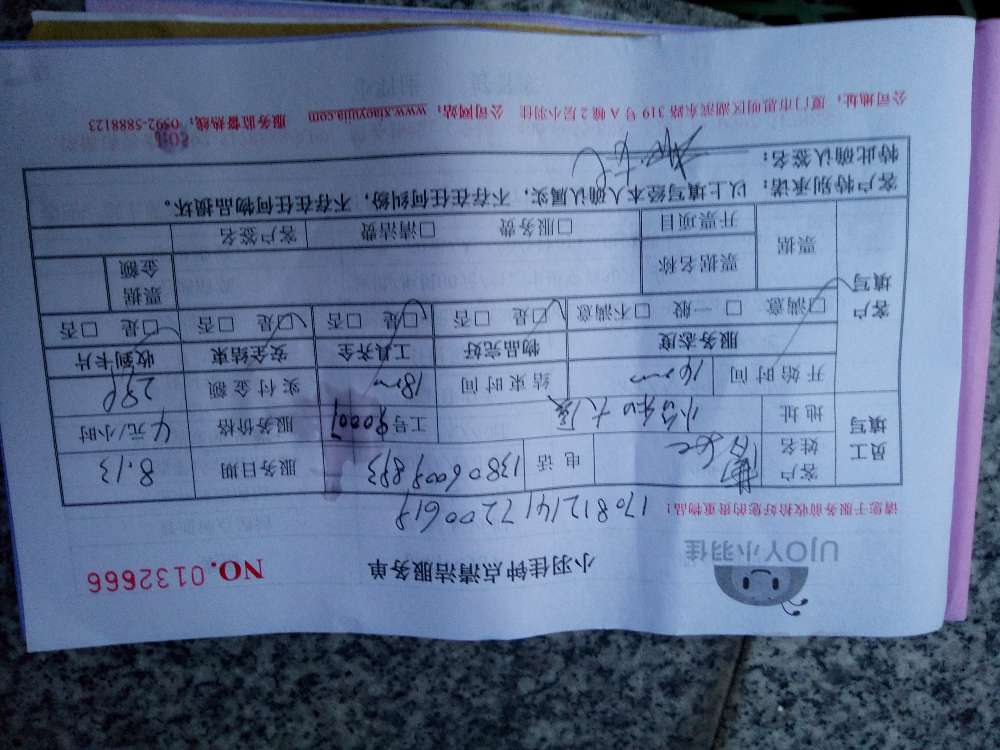 UJOY小羽佳
小羽佳钟点清洁服务单
NO.0132666
请您于服务前收拾好您的贵重物品!
1708121417200619
员工填写
客户姓名 电话 13806009893 服务日期 8.13
地址 工号 90007 服务价格 4 元/小时
客户填写
开始时间 结束时间 实付金额 280
服务态度 物品完好 工具齐全 安全结束 收到卡片
□满意 □一般 □不满意 □是 □否 □是 □否 □是 □否 □是 □否
票据 票据名称 票据金额
开票项目 □服务费 □清洁费 客户签名
客户特别承诺: 以上填写经本人确认属实,不存在任何纠纷,不存在任何物品损坏。
特此确认签名:
公司地址:厦门市思明区湖滨东路 319 号 A 幢 2 层小羽佳 公司网站:www.xiaoyujia.com 服务监督热线:0592-5888123